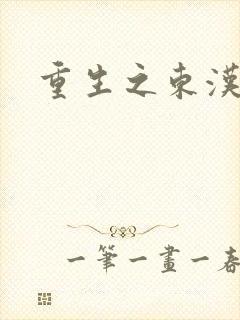 重生之東漢
一筆一畫一春